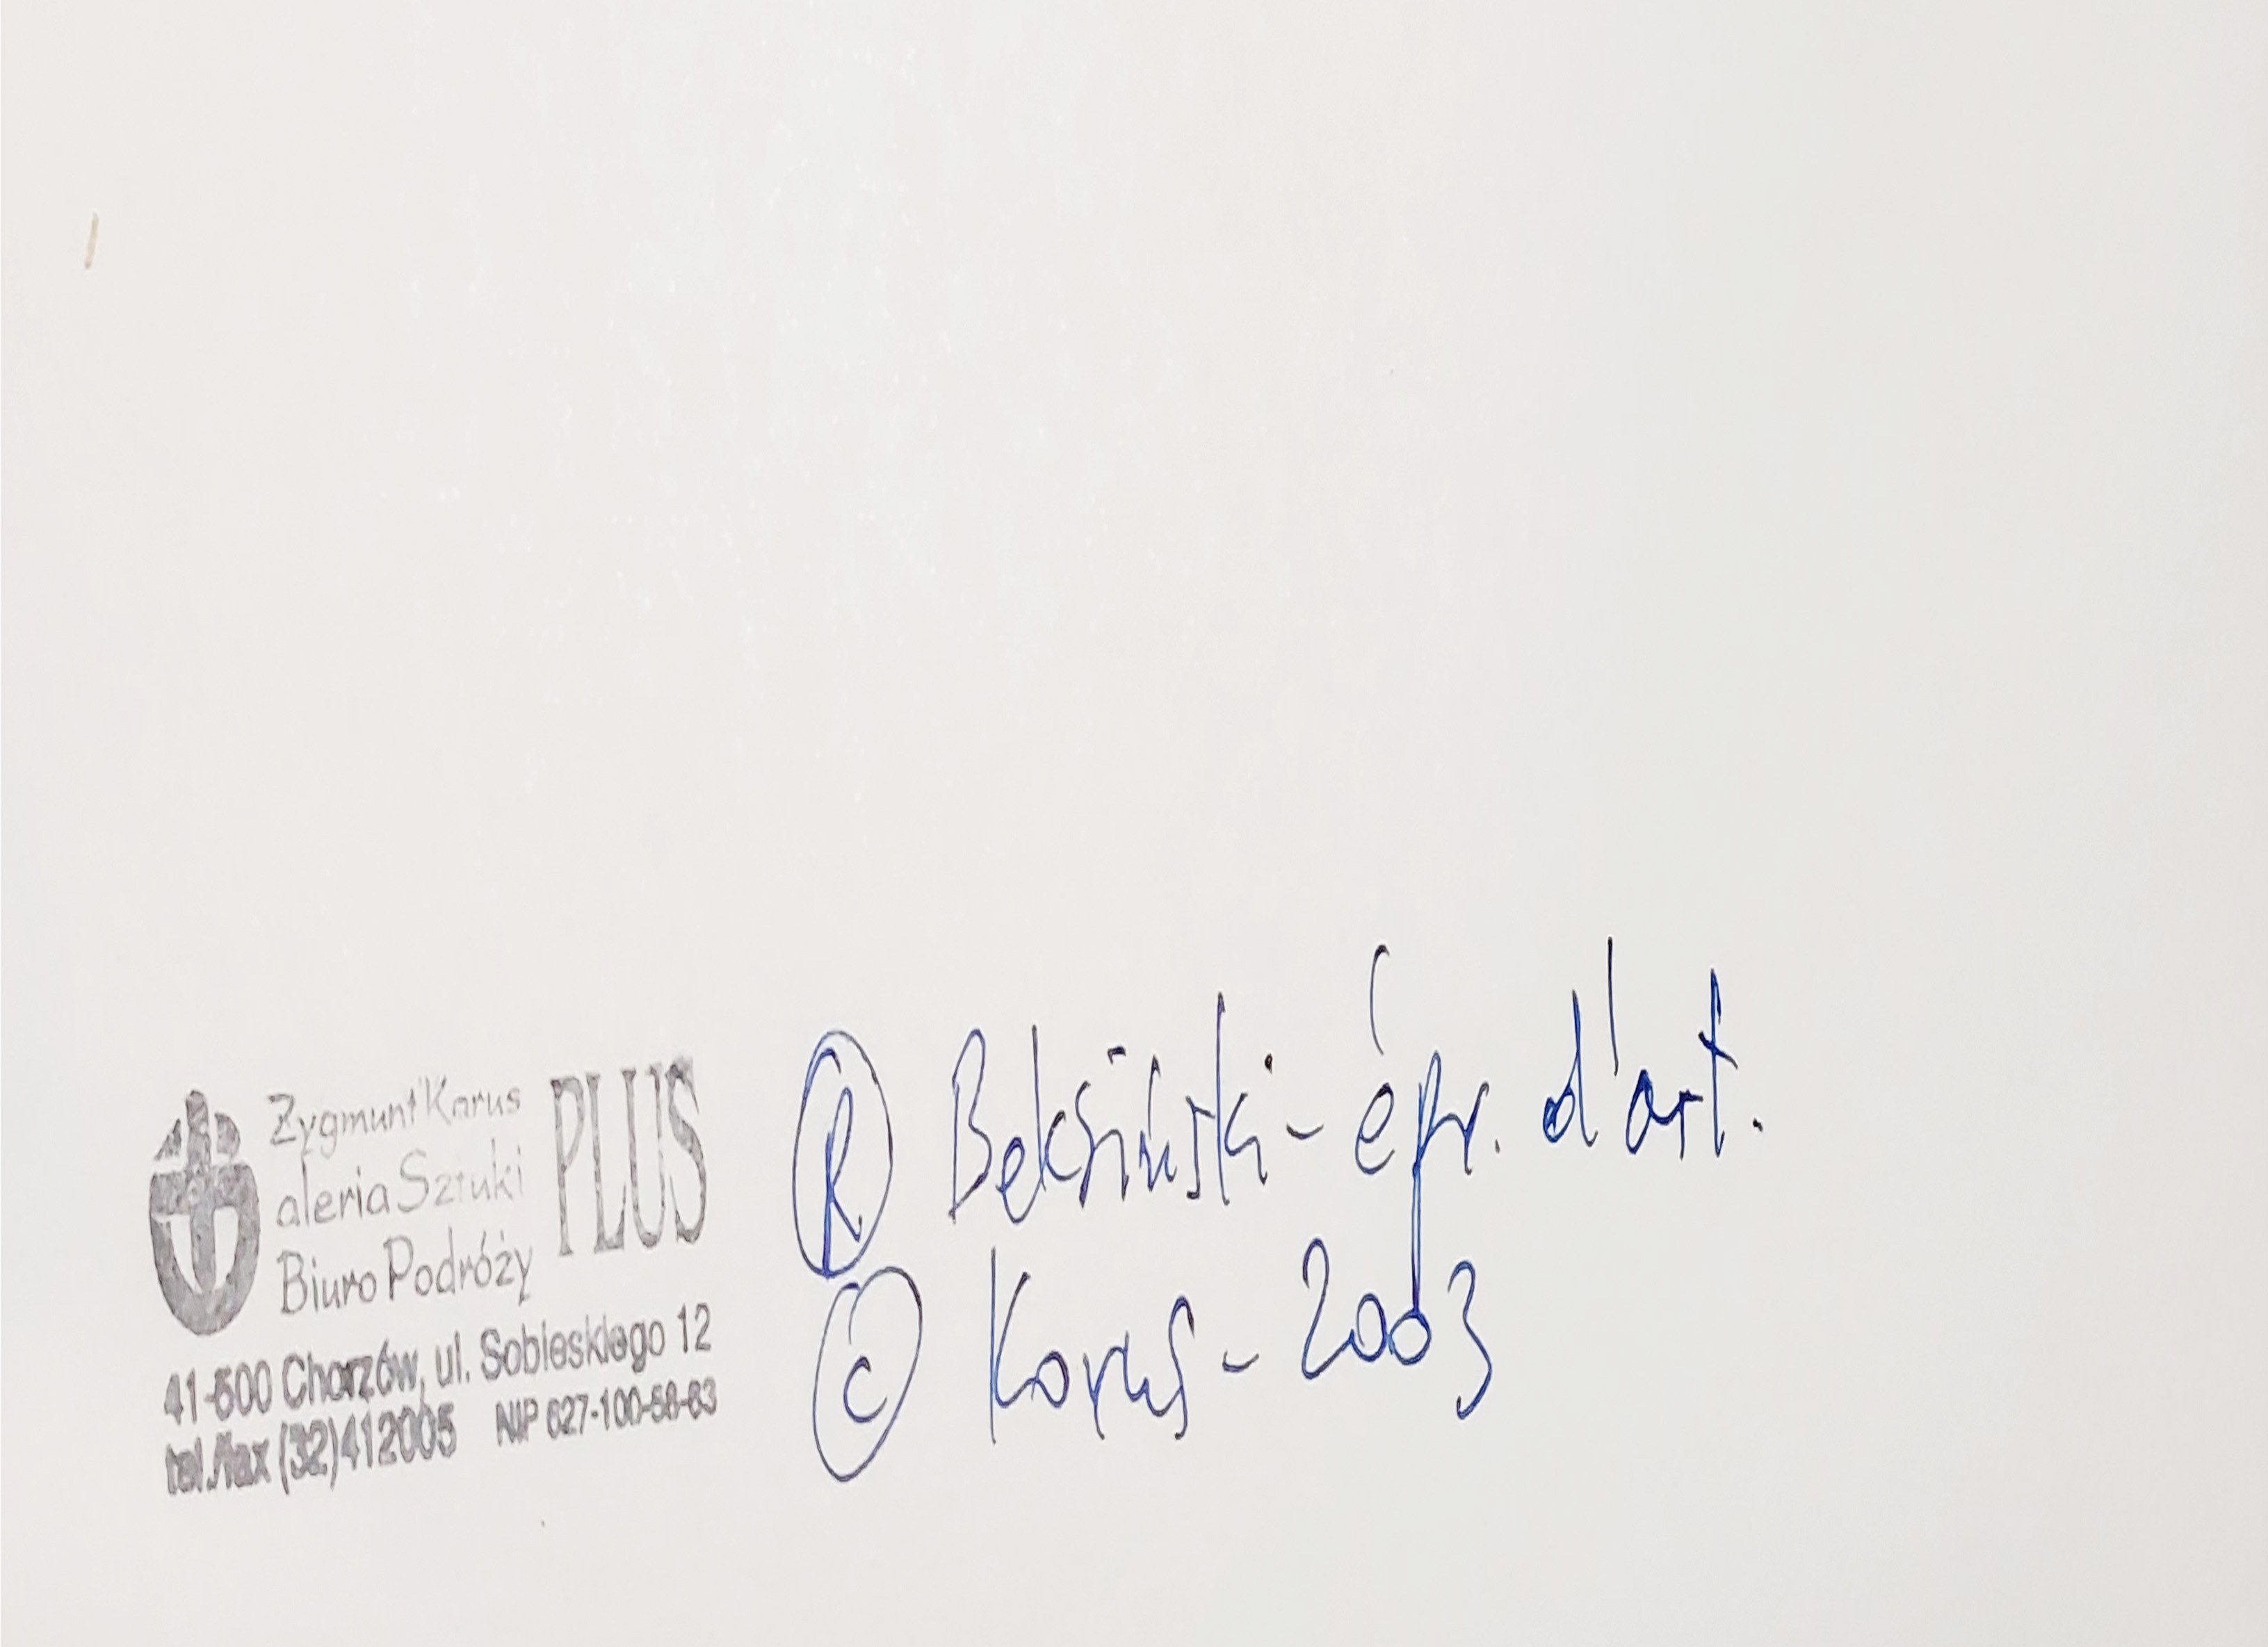 Zygmunt Karus
aleria Sztuki
Biuro Podróży
PLUS
41-500 Chorzów, ul. Sobieskiego 12
tel./fax (32)412005 NIP 627-100-58-83
® Beksiński - épr. d'art.
© Karus - 2003